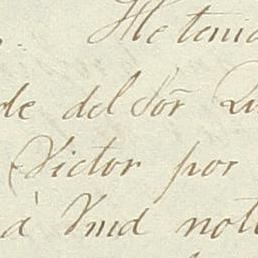 He tenid
de del Sōr Lu
Victor por
à Vmd not